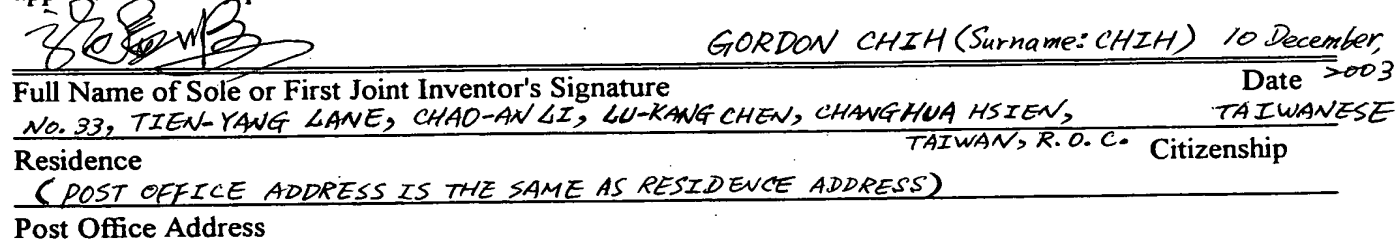 GORDON CHIH (Surname: CHIH) 10 December,
2003
Full Name of Sole or First Joint Inventor's Signature Date
No. 33, TIEN-YANG LANE, CHAO-AN LI, LU-KANG CHEN, CHANGHUA HSIEN, TAIWANESE
TAIWAN, R.O.C.
Residence Citizenship
(POST OFFICE ADDRESS IS THE SAME AS RESIDENCE ADDRESS)
Post Office Address